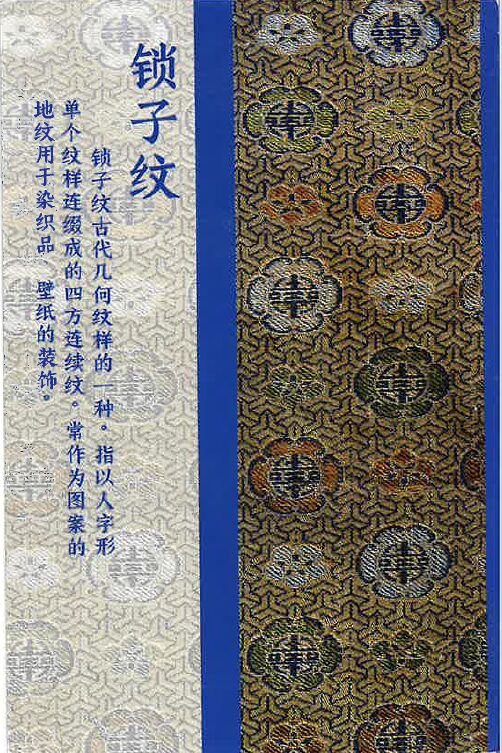 锁子纹
锁子纹古代几何纹样的一种。指以人字形
单个纹样连缀成的四方连续纹。常作为图案的
地纹用于染织品 壁纸的装饰。